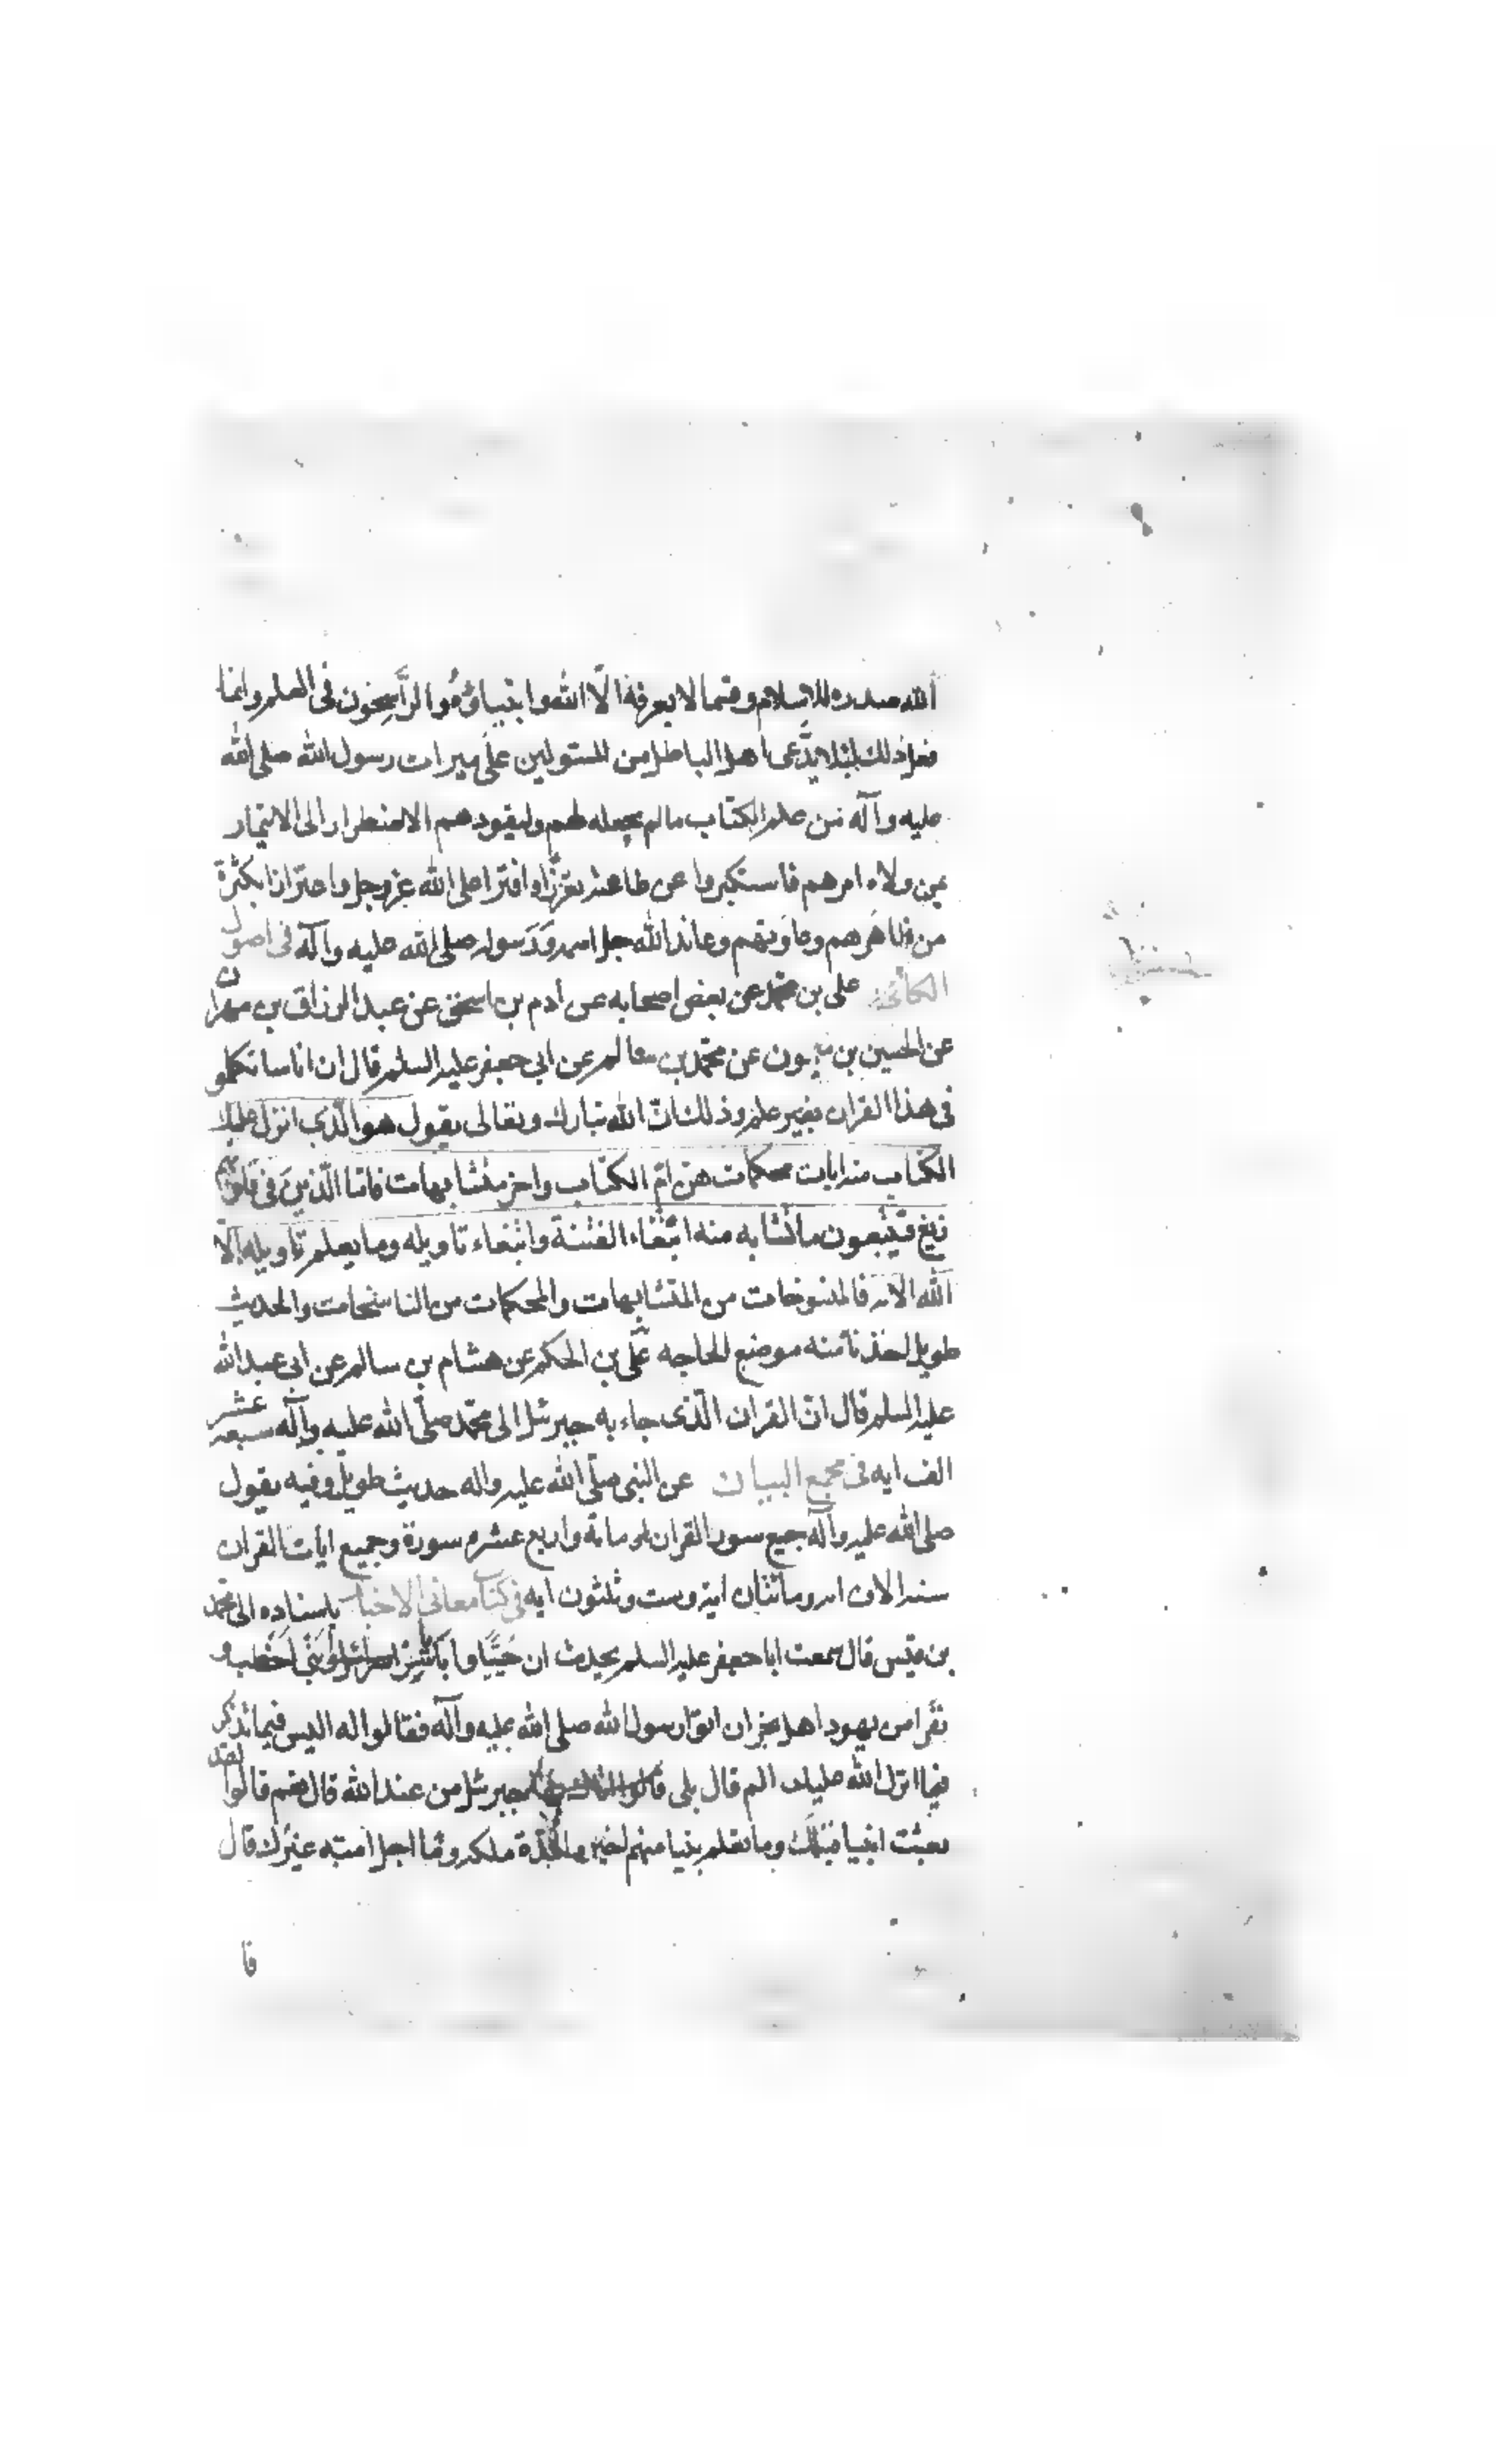 الله صدره للاسلام وقسما لا يعرفه الّا الله وانبياؤه والرّاسخون فى العلم وانما
فعل ذلك لئلا يدّعى اهل الباطل من المستولين على ميراث رسول الله صلى الله
عليه وآله من علم الكتاب ما لم يجعله لهم وليقودهم الاضطرار الى الايتمار
بمن ولاه امرهم فاستكبروا عن طاعته تعززا وافترا على الله عز وجل واغترارا بكثرة
من ظاهرهم وعاونهم وعاند الله جل اسمه ورسوله صلى الله عليه وآله فى اصول
الكافى على بن محمد عن بعض اصحابه عن ادم بن اسحق عن عبد الرزاق بن مهران
عن الحسين بن ميمون عن محمد بن سالم عن ابى جعفر عليه السلم قال ان اناسا تكلمو
فى هذا القران بغير علم وذلك انّ الله تبارك وتعالى يقول هو الّذى انزل عليك
الكتاب منه ايات محكمات هنّ امّ الكتاب واخر متشابهات فامّا الّذين فى قلوبهم
زيغ فيتّبعون ما تشابه منه ابتغاء الفتنة وابتغاء تاويله وما يعلم تاويله الّا
الله الايه فالمنسوخات من المتشابهات والمحكمات من الناسخات والحديث
طويل اخذنا منه موضع الحاجه علّى بن الحكم عن هشام بن سالم عن ابى عبد الله
عليه السلم قال انّ القران الّذى جاء به جبرئل الى محمّد صلّى الله عليه وآله سبعة عشر
الف ايه فى مجمع البيان عن النبى صلّى الله عليه واله حديث طويل وفيه يقول
صلى الله عليه وآله جميع سور القران مائة واربع عشره سورة وجميع ايات القران
ستة الاف ايه ومائتان اية وست وثلثون ايه فى كتاب معانى الاخبار باسناده الى محمد
بن قيس قال سمعت ابا جعفر عليه السلم يحدث ان حُيَيّا وابا ياسر ابنى اخطب و
نفرا من يهود اهل نجران اتوا رسول الله صلى الله عليه وآله فقالوا له اليس فيما تذكر
فيما انزل الله عليك الم قال بلى قالوا اتاك بها جبرئل من عند الله قال نعم قالوا لقد
بعثت انبيا قبلك وما نعلم نبيا منهم اخبر ما مدة ملكه وما اجل امته غيرك قال
فا